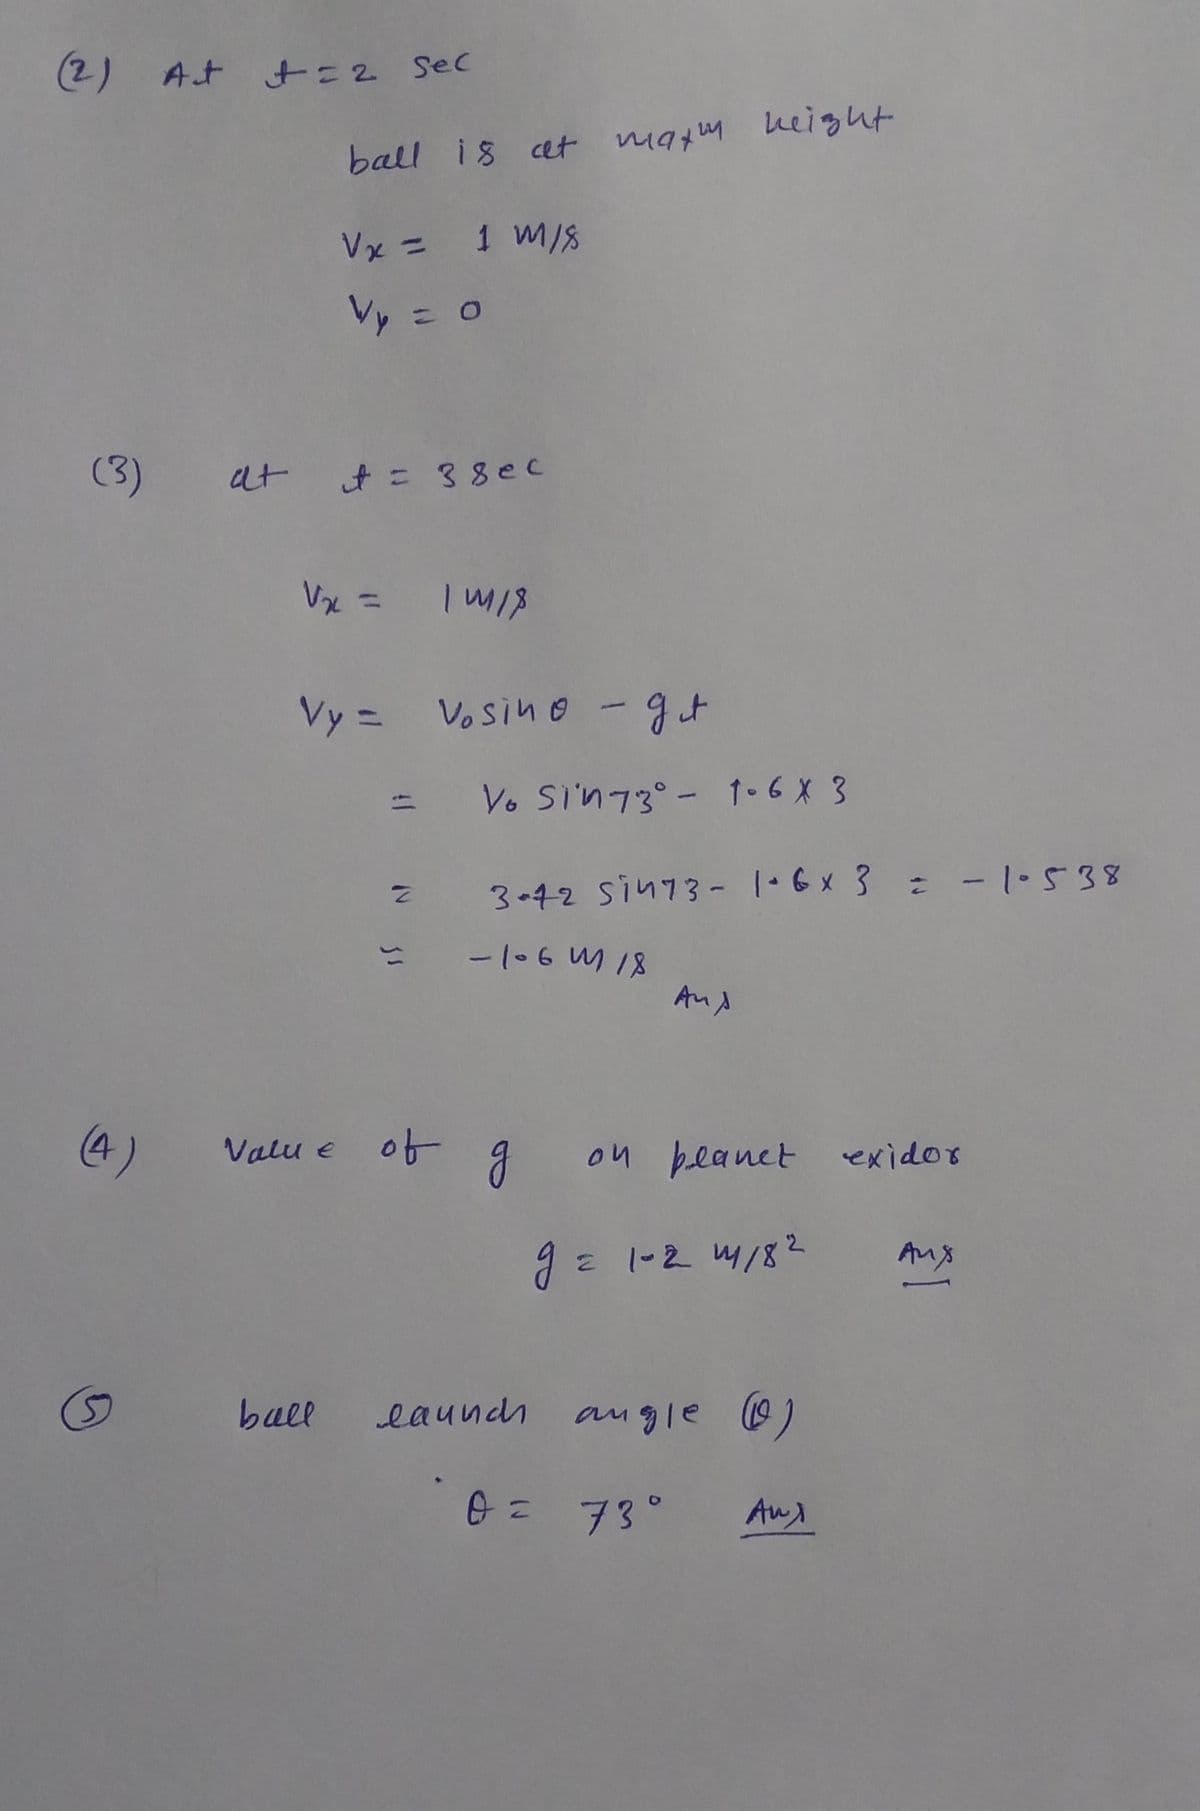 (2) At t = 2 sec
ball is at maxm height
Vx = 1 m/s
Vy = 0
(3) at t = 3 sec
Vx = 1 m/s
Vy = V₀ sin θ - gt
= V₀ sin 73° - 1.6 x 3
= 3.42 sin 73 - 1.6 x 3 = - 1.538
= - 1.6 m/s
Ans
(4) Value of g on planet exidor
g = 1.2 m/s² Ans
(5) ball launch angle (θ)
θ = 73° Ans